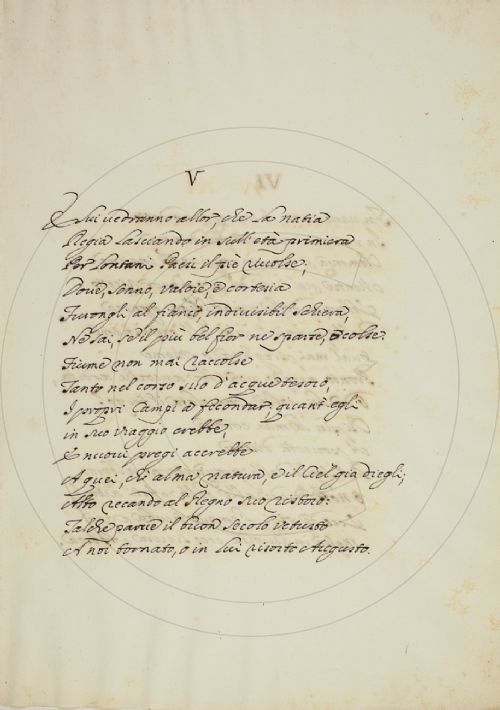 V
E lui vedranno allor, che la natia
Regia lasciando in sull' età primiera
Per lontani Paesi il piè rivolse;
Dove, Senno, Valore, e cortesia
Furongli al fianco, indivisibil schiera,
Ne sai, se il più bel fior ne sparse, o colse.
Fiume non mai raccolse
Tanto nel corso suo d'acque tesoro,
I propri Campi a fecondar, quant' egli
in suo viaggio crebbe,
E nuovi pregi accrebbe
A quei, ch' alma natura, e il Ciel gia diegli;
Alto recando al Regno suo ristoro:
Talche parve il buon Secolo vetusto
A noi tornato, o in lui risorto Augusto.